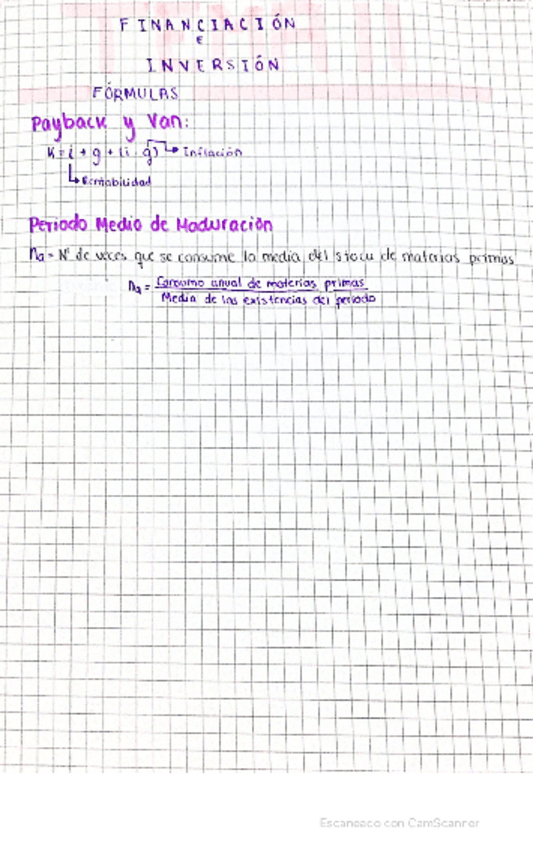 FINANCIACIÓN
E
INVERSIÓN
FÓRMULAS
Payback y Van:
K = i + g + (i · g) → Inflación
↳ Rentabilidad
Periodo Medio de Maduración
na = Nº de veces que se consume la media del stock de materias primas
na = Consumo anual de materias primas
Media de las existencias del periodo
Escaneado con CamScanner